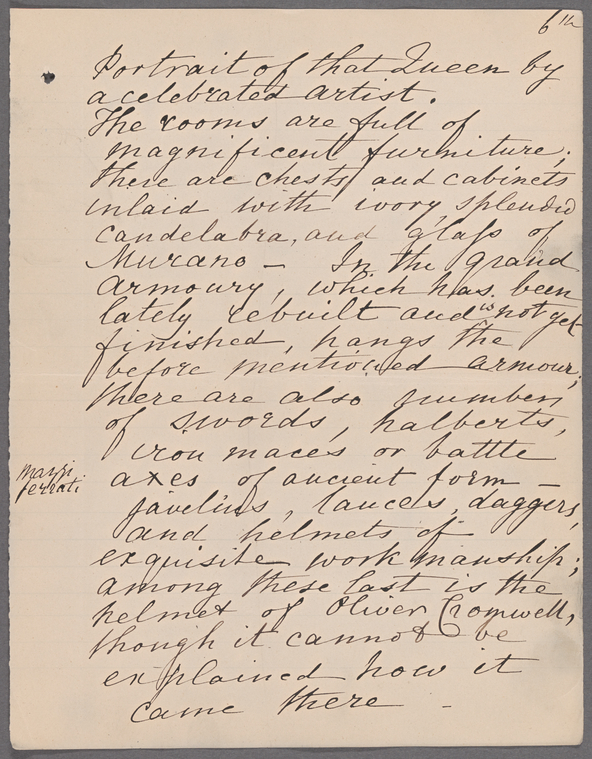 6th
Portrait of that Queen by
a celebrated artist.
The rooms are full of
magnificent furniture;
there are chests and cabinets
inlaid with ivory, splendid
candelabra, and glass of
Murano — In the grand
armoury, which has been
lately rebuilt and is not yet
finished, hangs the
before mentioned armour;
there are also numbers
of swords, halberts,
iron maces or battle
mazzi
ferrati
axes of ancient form —
javelins, lances, daggers,
and helmets of
exquisite workmanship;
among these last is the
helmet of Oliver Cromwell,
though it cannot be
explained how it
came there —